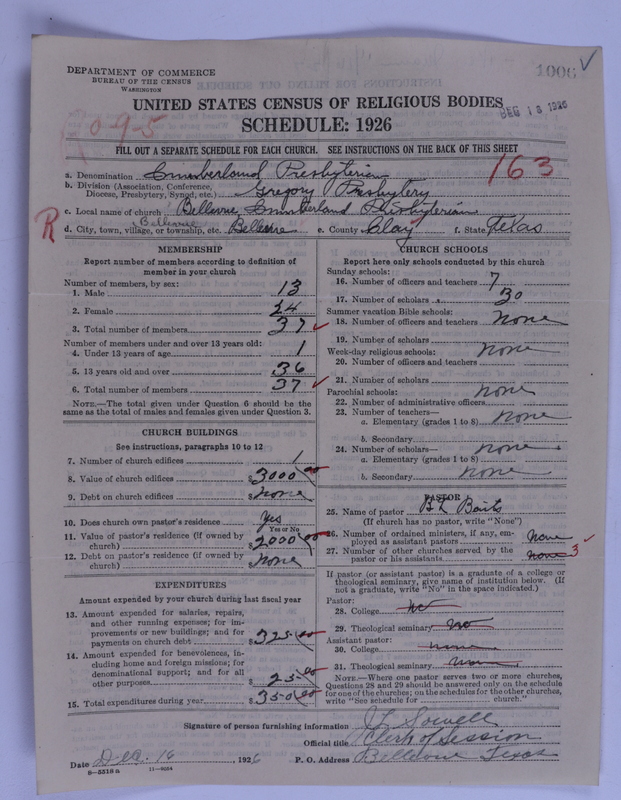 DEPARTMENT OF COMMERCE
BUREAU OF THE CENSUS
WASHINGTON
1006 ✓
UNITED STATES CENSUS OF RELIGIOUS BODIES
DEC 18 1926
SCHEDULE: 1926
095
FILL OUT A SEPARATE SCHEDULE FOR EACH CHURCH. SEE INSTRUCTIONS ON THE BACK OF THIS SHEET
163
a. Denomination Cumberland Presbyterian
b. Division (Association, Conference, Diocese, Presbytery, Synod, etc.) Gregory Presbytery
c. Local name of church Bellevue Cumberland Presbyterian
R
Bellevue
d. City, town, village, or township, etc. Bellevue e. County Clay f. State Texas
MEMBERSHIP
Report number of members according to definition of member in your church
Number of members, by sex:
1. Male 13
2. Female 24
3. Total number of members 37 ✓
Number of members under and over 13 years old:
4. Under 13 years of age 1
5. 13 years old and over 36
6. Total number of members 37 ✓
NOTE.—The total given under Question 6 should be the same as the total of males and females given under Question 3.
CHURCH BUILDINGS
See instructions, paragraphs 10 to 12
7. Number of church edifices 1
8. Value of church edifices $ 3000 00
9. Debt on church edifices $ None
10. Does church own pastor's residence Yes
Yes or No
11. Value of pastor's residence (if owned by church) $ 2000 00
12. Debt on pastor's residence (if owned by church) $ None
EXPENDITURES
Amount expended by your church during last fiscal year
13. Amount expended for salaries, repairs, and other running expenses; for improvements or new buildings; and for payments on church debt $ 325 00
14. Amount expended for benevolences, including home and foreign missions; for denominational support; and for all other purposes $ 25 00
15. Total expenditures during year $ 350 00
CHURCH SCHOOLS
Report here only schools conducted by this church
Sunday schools:
16. Number of officers and teachers 7
17. Number of scholars 30
Summer vacation Bible schools:
18. Number of officers and teachers None
19. Number of scholars
Week-day religious schools: None
20. Number of officers and teachers
21. Number of scholars
Parochial schools: None
22. Number of administrative officers
23. Number of teachers— None
a. Elementary (grades 1 to 8)
b. Secondary
24. Number of scholars— None
a. Elementary (grades 1 to 8)
b. Secondary None
PASTOR
25. Name of pastor
(If church has no pastor, write "None")
26. Number of ordained ministers, if any, employed as assistant pastors None
27. Number of other churches served by the pastor or his assistants None 3 ✓
If pastor (or assistant pastor) is a graduate of a college or theological seminary, give name of institution below. (If not a graduate, write "No" in the space indicated.)
Pastor:
28. College No
29. Theological seminary No
Assistant pastor:
30. College None
31. Theological seminary None
NOTE.—Where one pastor serves two or more churches, Questions 28 and 29 should be answered only on the schedule for one of the churches; on the schedules for the other churches, write "See schedule for church."
Signature of person furnishing information J L Sowell
Official title Clerk of Session
Date Dec. 16, 1926 P. O. Address Bellevue Texas
8—5518a 11—9034